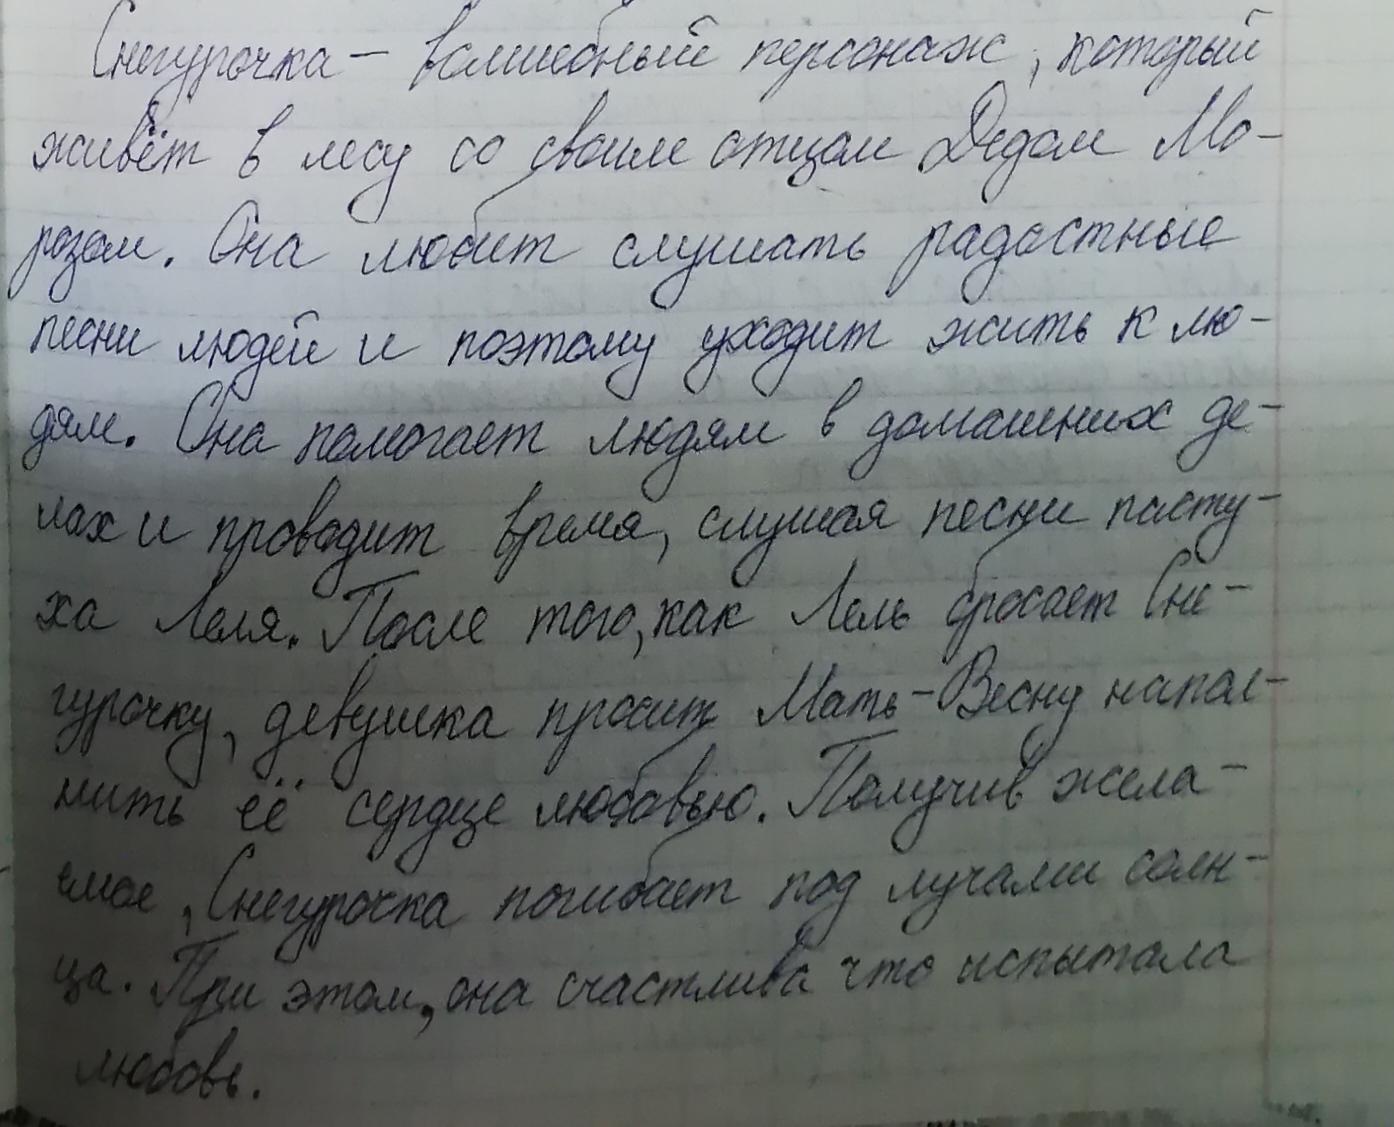 Снегурочка – волшебный персонаж, который
живёт в лесу со своим отцом Дедом Мо-
розом. Она любит слушать радостные
песни людей и поэтому уходит жить к лю-
дям. Она помогает людям в домашних де-
лах и проводит время, слушая песни пасту-
ха Леля. После того, как Лель бросает Сне-
гурочку, девушка просит Мать-Весну напол-
нить её сердце любовью. Получив жела-
емое, Снегурочка погибает под лучами солн-
ца. При этом, она счастлива что испытала
любовь.